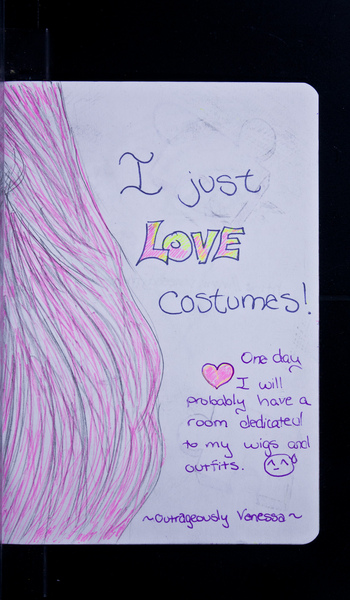 I just
LOVE
costumes!
One day
I will
probably have a
room dedicated
to my wigs and
outfits.
~Outrageously Vanessa~